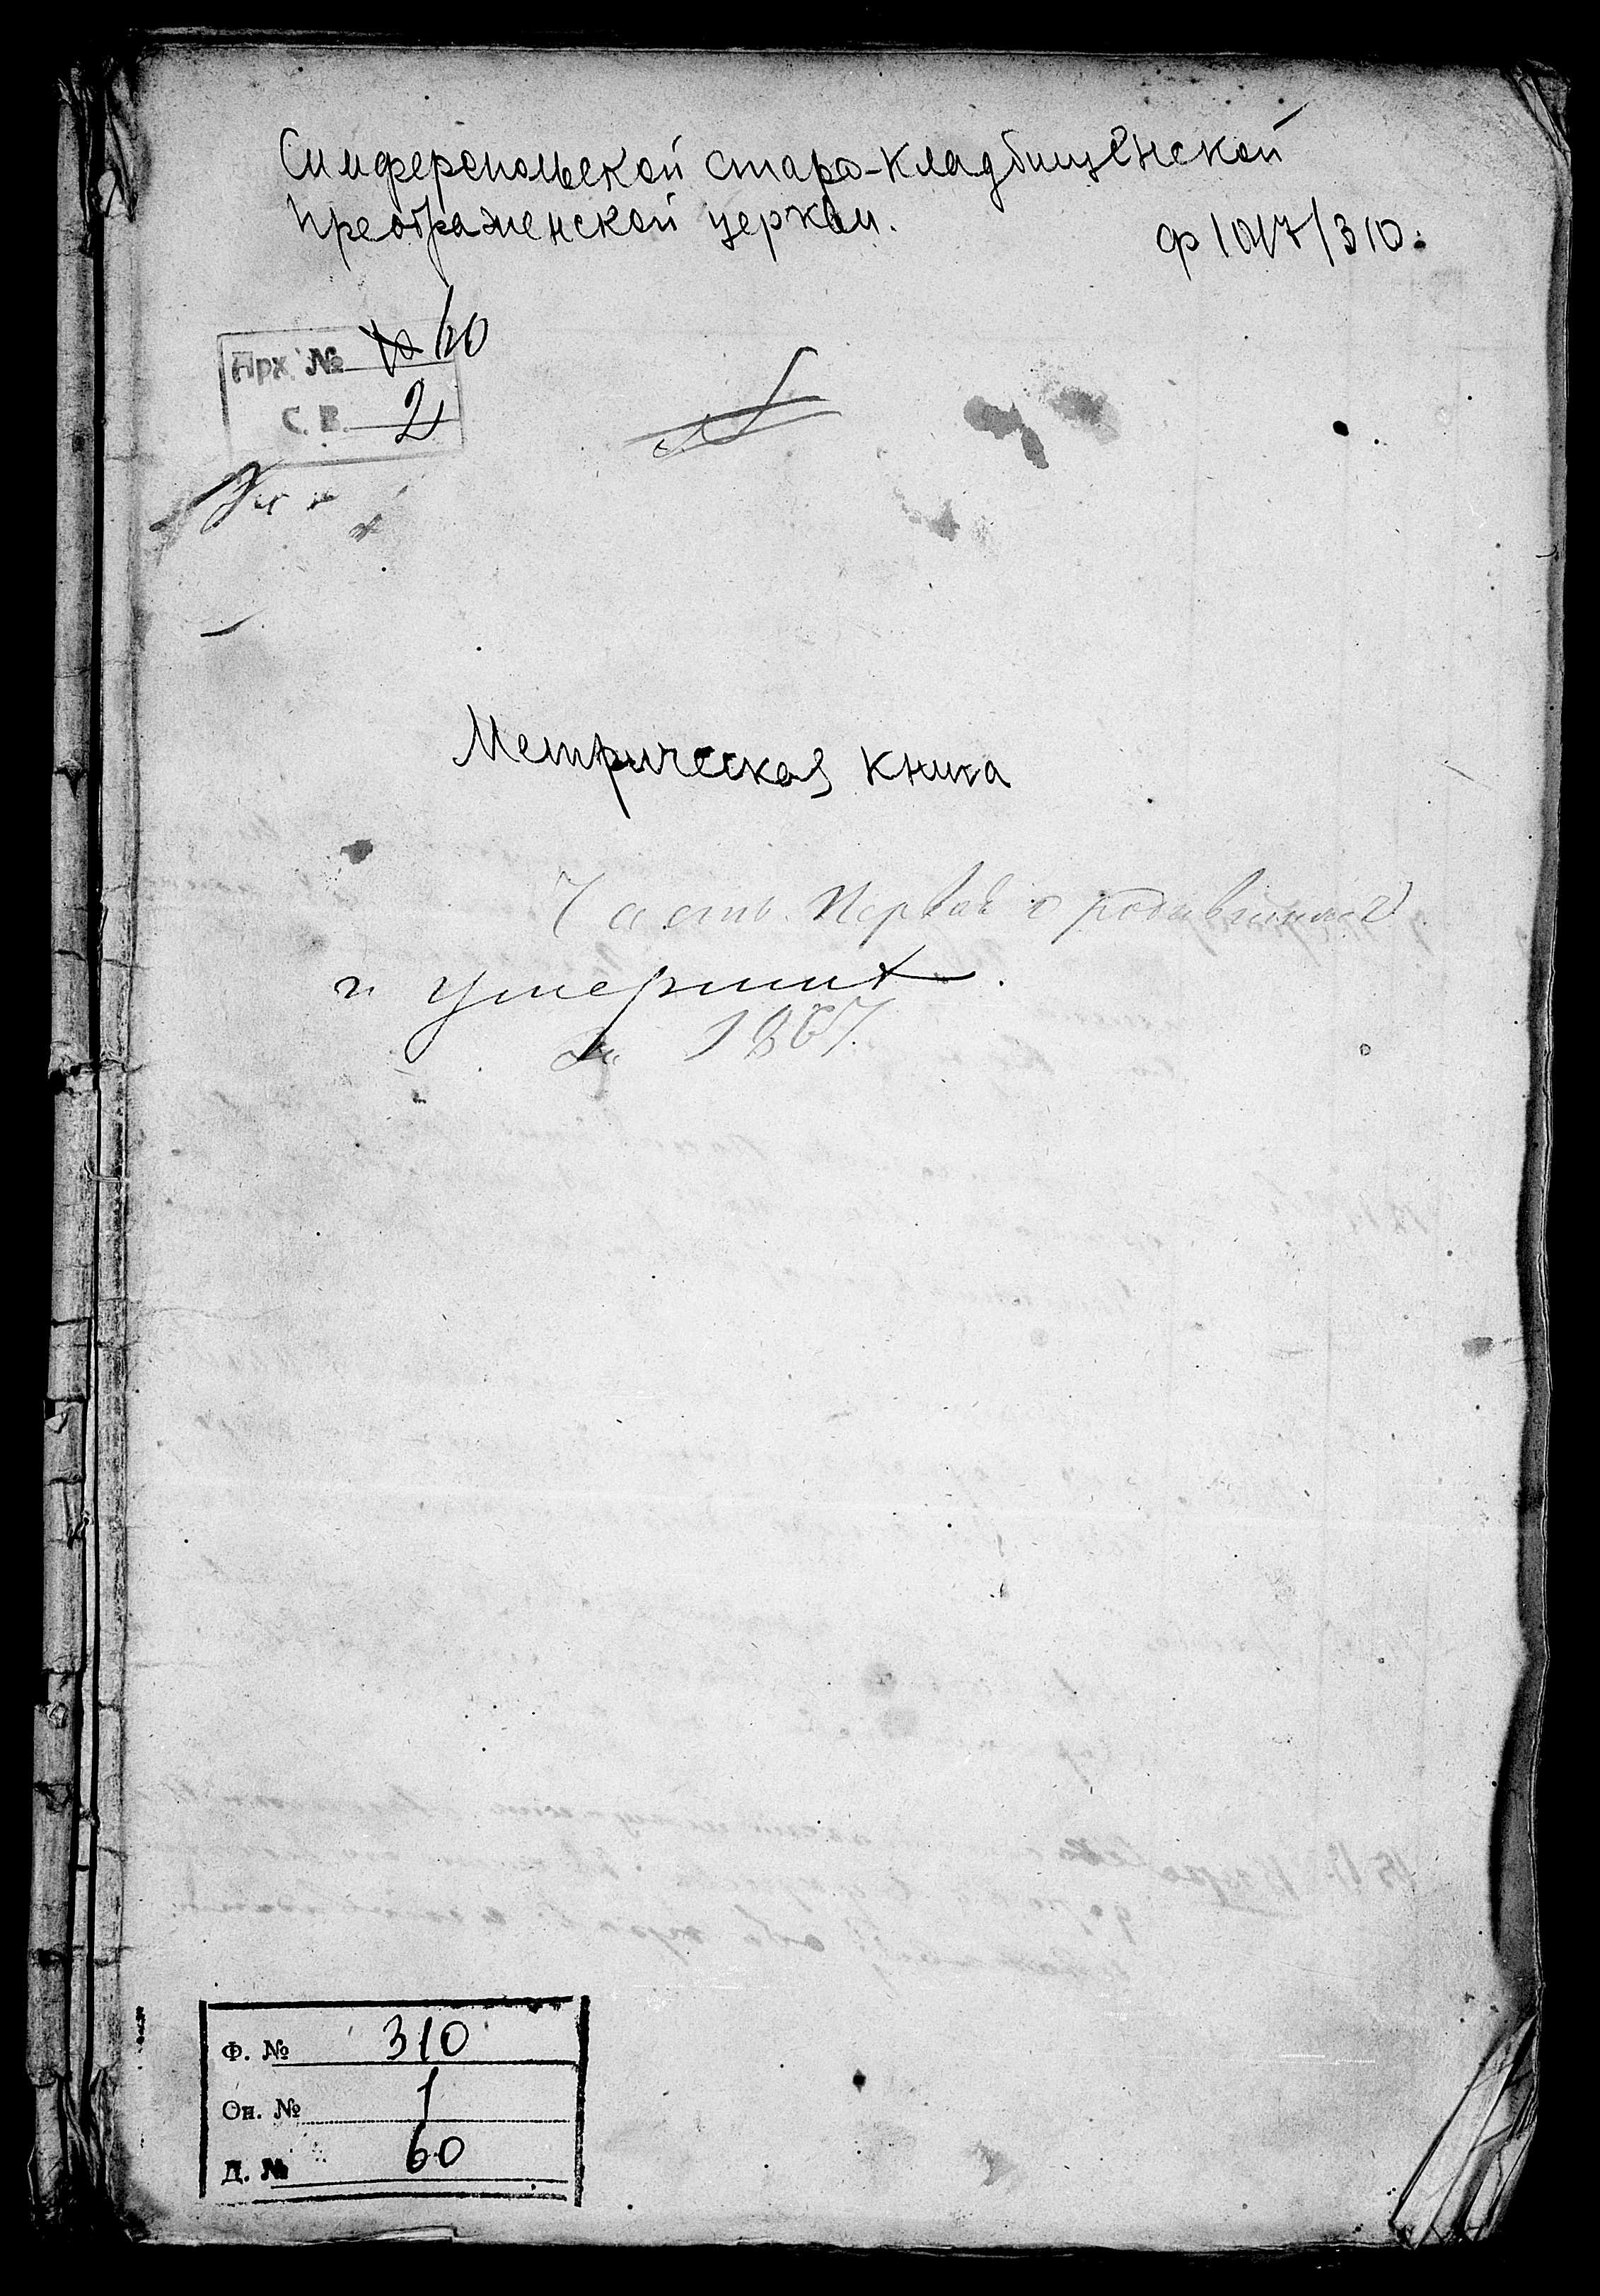 Симферопольской старо-кладбищенской
преображенской церкви.
ф 1017/310.
Арх. №
С. В. 2
Метрическая книга
Часть Первая о родившихся
и умерших.
За 1867.
Ф. № 310
Оп. № 1
Д. № 60